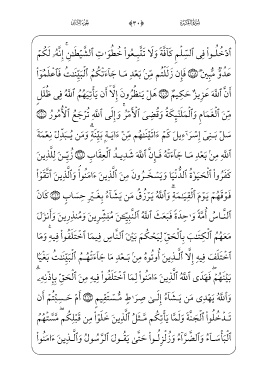 سُورَةُ البَقَرَةِ ﴿٣٠﴾ الجُزءُ الثَّانِي
ٱدْخُلُوا۟ فِى ٱلسِّلْمِ كَآفَّةً وَلَا تَتَّبِعُوا۟ خُطُوَٰتِ ٱلشَّيْطَٰنِ إِنَّهُۥ لَكُمْ
عَدُوٌّ مُّبِينٌ فَإِن زَلَلْتُم مِّنۢ بَعْدِ مَا جَآءَتْكُمُ ٱلْبَيِّنَٰتُ فَٱعْلَمُوٓا۟
أَنَّ ٱللَّهَ عَزِيزٌ حَكِيمٌ هَلْ يَنظُرُونَ إِلَّآ أَن يَأْتِيَهُمُ ٱللَّهُ فِى ظُلَلٍ
مِّنَ ٱلْغَمَامِ وَٱلْمَلَٰٓئِكَةُ وَقُضِىَ ٱلْأَمْرُ وَإِلَى ٱللَّهِ تُرْجَعُ ٱلْأُمُورُ
سَلْ بَنِىٓ إِسْرَٰٓءِيلَ كَمْ ءَاتَيْنَٰهُم مِّنْ ءَايَةٍۭ بَيِّنَةٍ وَمَن يُبَدِّلْ نِعْمَةَ
ٱللَّهِ مِنۢ بَعْدِ مَا جَآءَتْهُ فَإِنَّ ٱللَّهَ شَدِيدُ ٱلْعِقَابِ زُيِّنَ لِلَّذِينَ
كَفَرُوا۟ ٱلْحَيَوٰةُ ٱلدُّنْيَا وَيَسْخَرُونَ مِنَ ٱلَّذِينَ ءَامَنُوا۟ وَٱلَّذِينَ ٱتَّقَوْا۟
فَوْقَهُمْ يَوْمَ ٱلْقِيَٰمَةِ وَٱللَّهُ يَرْزُقُ مَن يَشَآءُ بِغَيْرِ حِسَابٍ كَانَ
ٱلنَّاسُ أُمَّةً وَٰحِدَةً فَبَعَثَ ٱللَّهُ ٱلنَّبِيِّـۧنَ مُبَشِّرِينَ وَمُنذِرِينَ وَأَنزَلَ
مَعَهُمُ ٱلْكِتَٰبَ بِٱلْحَقِّ لِيَحْكُمَ بَيْنَ ٱلنَّاسِ فِيمَا ٱخْتَلَفُوا۟ فِيهِ وَمَا
ٱخْتَلَفَ فِيهِ إِلَّا ٱلَّذِينَ أُوتُوهُ مِنۢ بَعْدِ مَا جَآءَتْهُمُ ٱلْبَيِّنَٰتُ بَغْيًۢا
بَيْنَهُمْ فَهَدَى ٱللَّهُ ٱلَّذِينَ ءَامَنُوا۟ لِمَا ٱخْتَلَفُوا۟ فِيهِ مِنَ ٱلْحَقِّ بِإِذْنِهِۦ
وَٱللَّهُ يَهْدِى مَن يَشَآءُ إِلَىٰ صِرَٰطٍ مُّسْتَقِيمٍ أَمْ حَسِبْتُمْ أَن
تَدْخُلُوا۟ ٱلْجَنَّةَ وَلَمَّا يَأْتِكُم مَّثَلُ ٱلَّذِينَ خَلَوْا۟ مِن قَبْلِكُم مَّسَّتْهُمُ
ٱلْبَأْسَآءُ وَٱلضَّرَّآءُ وَزُلْزِلُوا۟ حَتَّىٰ يَقُولَ ٱلرَّسُولُ وَٱلَّذِينَ ءَامَنُوا۟